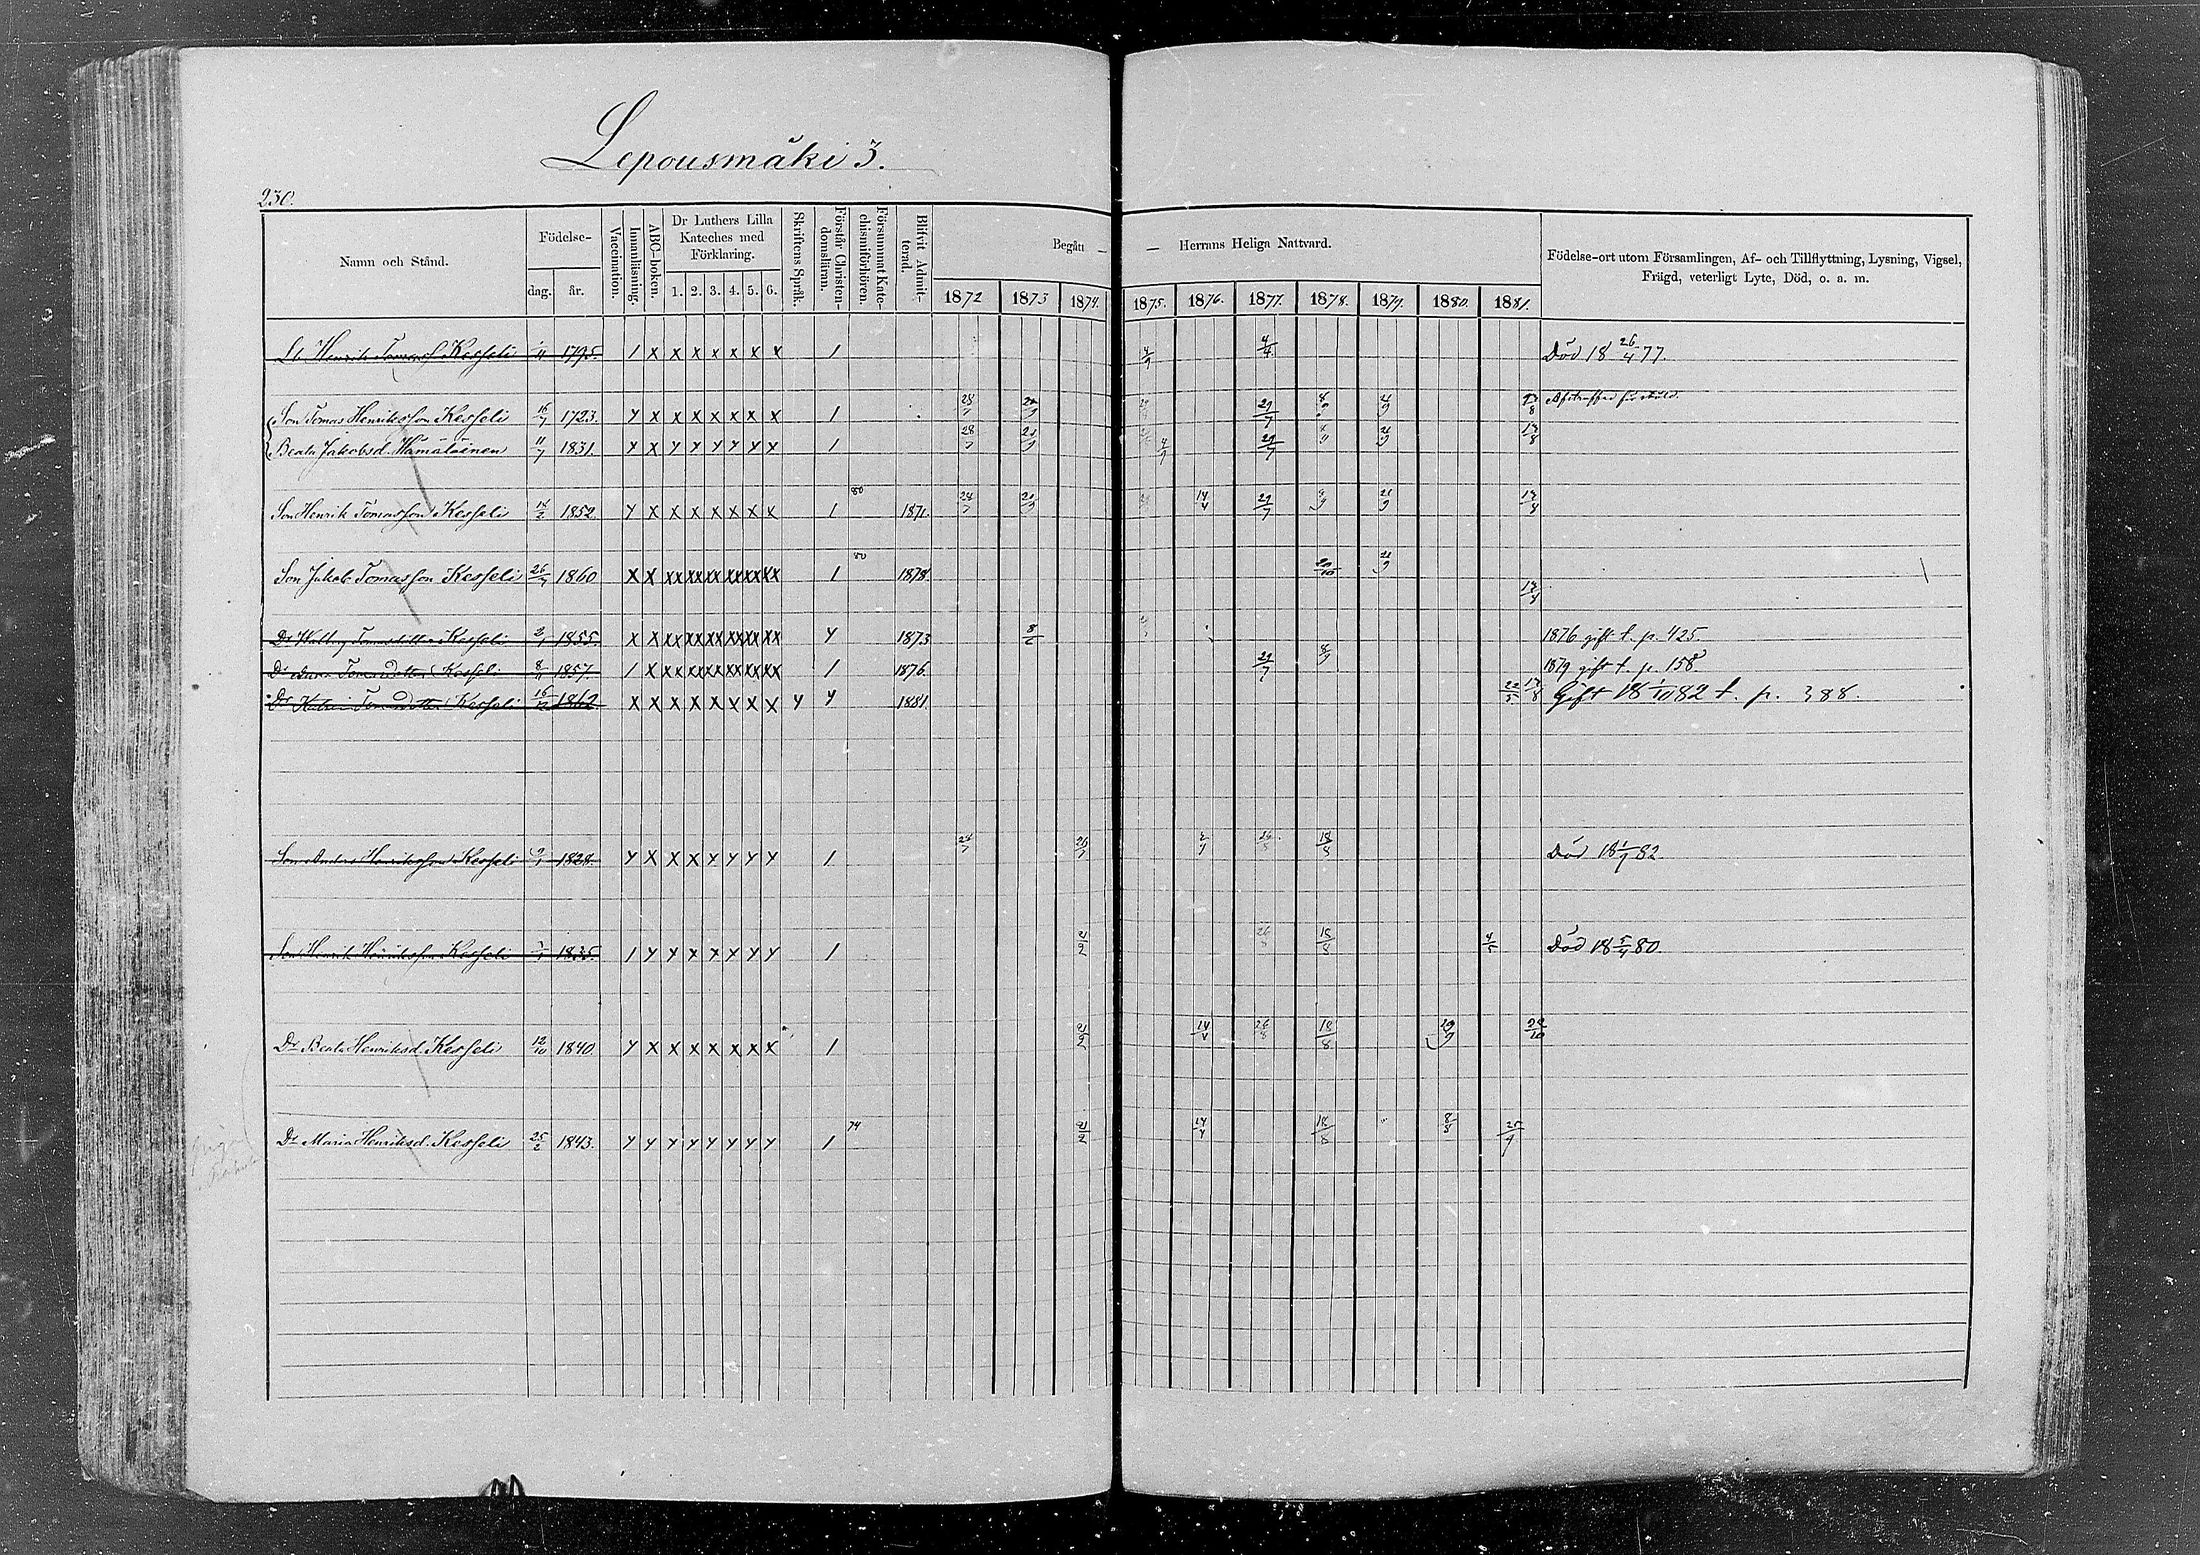 Lepousmäki 3.
230.
Namn och Stånd.
Födelse-
dag. år.
Vaccination.
Innanläsning.
ABC-boken.
Dr Luthers Lilla
Kateches med
Förklaring.
1. 2. 3. 4. 5. 6.
Skriftens Språk.
Förstår Christen-
domsläran.
Försummat Kate-
chismiförhören.
Blifvit Admit-
terad.
Begått — — Herrans Heliga Nattvard.
1872 1873 1874. 1875. 1876. 1877. 1878. 1879. 1880. 1881.
Födelse-ort utom Församlingen, Af- och Tillflyttning, Lysning, Vigsel,
Frägd, veterligt Lyte, Död, o. a. m.
Henrik Tomass. Kesseli 1795. / x x x x x x x / 4/9 4/4 Död 18 26/4 77.
Son Tomas Henriksson Kesseli 16/7 1723. y x x x x x x x / 28/7 29/7 8/9 21/9
Beata Jakobsd. Hämäläinen 11/7 1831. y x y y y y y x / 28/7 4/9 29/7 21/9
Son Henrik Tomasson Kesseli 1852 y x x x x x x x / 80 1871. 14/4 29/7 21/9
Son Jakob Tomasson Kesseli 26/7 1860 x x xx xx xx xx xx xx / 80 1878. 20/10 21/9
Dr Tomasdotter Kesseli 1855. x x xx xx xx xx xx xx y 1873 1876 gift t. p. 425.
Dr Anna Tomasdotter Kesseli 1857. / x xx xx xx xx xx xx / 1876. 29/7 8/9 1879 gift t. p. 158
Dr Katrin Tomasdotter Kesseli 16/12 1862 x x x x x x x x y y 1881. 22/5 Gift 18 1/10 82 t. p. 388.
Son Anders Henriksson Kesseli 1828. y x x x y y y y / 26/8 18/8 Död 18 1/7 82.
Son Henrik Henriksson Kesseli 1835. / y y y y y y y / 21/2 26/8 18/8 4/5 Död 18 5/4 80.
Dr Beata Henriksd. Kesseli 12/10 1840. y x x x x x x x / 21/2 14/4 26/8 18/8 29/9
Dr Maria Henriksd. Kesseli 25/2 1843. y y y y y y y y / 74 21/2 14/4 18/8 8/8 25/9